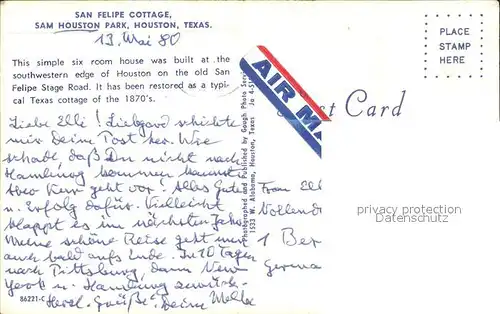 SAN FELIPE COTTAGE,
SAM HOUSTON PARK, HOUSTON, TEXAS.
13. Mai 80
This simple six room house was built at the
southwestern edge of Houston on the old San
Felipe Stage Road. It has been restored as a typi-
cal Texas cottage of the 1870's.
Liebe Elli! Liebgard schickte
mir Deine Post her. Wie
schade, daß Du nicht nach
Hamburg kommen kannst.
Aber Kur geht vor! Alles Gute
u. Erfolg dafür. Vielleicht
klappt es im nächsten Jahr.
Meine schöne Reise geht nun
auch bald aufs Ende. In 10 Tagen
nach Pittsburg, dann New
York u. Hamburg zurück.
Herzl. Grüße Deine
86221-C
Photographed and Published by Gough Photo Service
1533 W. Alabama, Houston, Texas Ja 4-5
AIR MA
Post Card
PLACE
STAMP
HERE
Frau Elli
Vollend
1 Ber
Germa
privacy protection